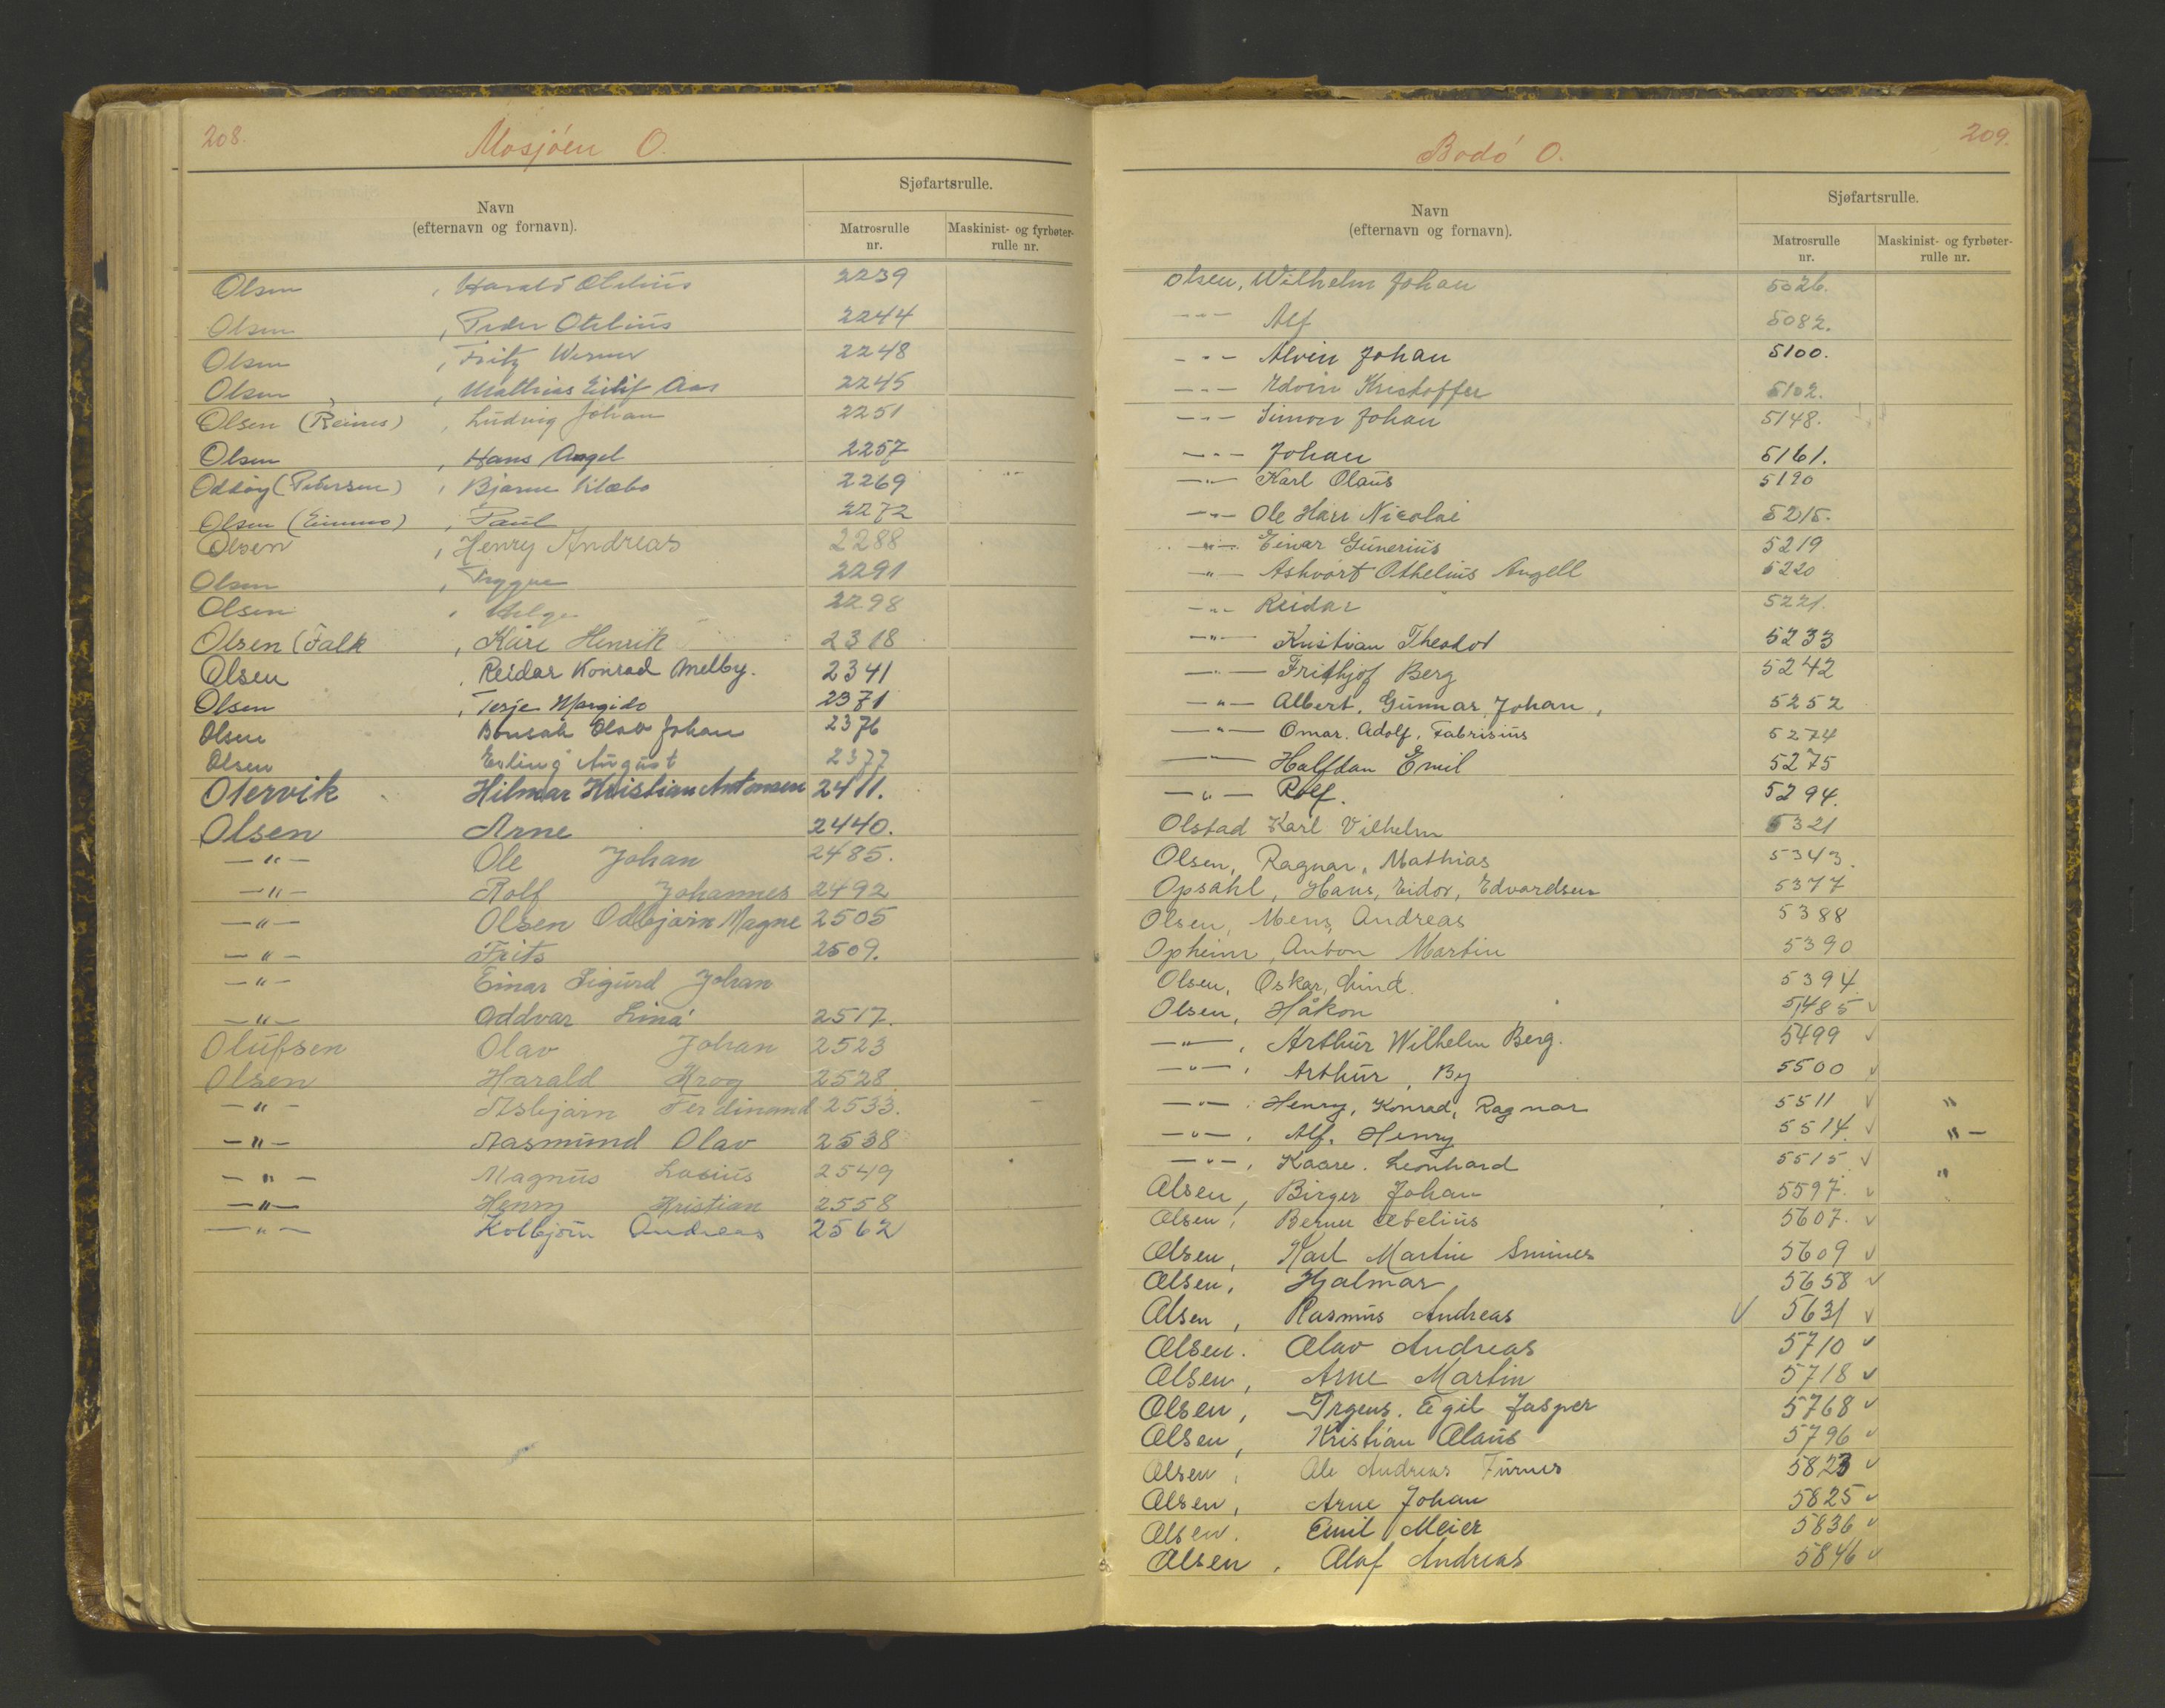 208.
Mosjöen O.
Navn
(efternavn og fornavn).
Sjøfartsrulle.
Matrosrulle
nr.
Maskinist- og fyrbøter-
rulle nr.
Olsen , Harald 2239
Olsen , Peder Otelius 2244
Olsen , Fritz Werner 2248
Olsen , Mathias Eilif Aas 2245
Olsen (Reines) , Ludvig Johan 2251
Olsen , Hans Angel 2257
Oddöy (Petersen) , Bjarne 2269
Olsen , Paul 2272
Olsen , Henry Andreas 2288
Olsen , Trygve 2291
Olsen , Helge 2298
Olsen (Falk , Kåre Henrik 2318
Olsen , Reidar Konrad Melby. 2341
Olsen , Terje Margido 2371
Olsen Bonsak Olav Johan 2376
Olsen Erling August 2377
Otervik Hilmar Kristian Antonsen 2411.
Olsen Arne 2440.
—"— Ole Johan 2485.
—"— Rolf Johannes 2492
—"— Olsen Odbjørn Magne 2505
—"— Frits 2509.
—"— Einar Sigurd Johan
—"— Oddvar 2517.
Olufsen Olav Johan 2523
Olsen Harald Krog 2528.
—"— Asbjørn Ferdinand 2533.
—"— Aasmund Olav 2538
—"— Magnus 2549
—"— Henry Kristian 2558
—"— Kolbjörn Andreas 2562
209.
Bodö O.
Navn
(efternavn og fornavn).
Sjøfartsrulle.
Matrosrulle
nr.
Maskinist- og fyrbøter-
rulle nr.
Olsen, Wilhelm Johan 5026.
—"— Alf 5082.
—"— Alvin Johan 5100.
—"— Edvin Kristoffer 5102.
—"— Simon Johan 5148.
—"— Johan 5161.
—"— Karl Olaus 5190
—"— Ole Hari Nicolai 5215.
—"— Einar Gunerius 5219
—"— Askvart Othelius Angell 5220
—"— Reidar 5221.
—"— Kristian Theodor 5233
—"— Frithjof Berg 5242
—"— Albert, Gunnar Johan, 5252
—"— Omar. Adolf, Fabrisius 5274
—"— Halfdan Emil 5275
—"— Rolf. 5294.
Olstad Karl Vilhelm 5321
Olsen, Ragnar, Mathias 5343.
Opsahl, Hans, Eidor, Edvardsen 5377
Olsen, Mens, Andreas 5388
Opheim, Anton Martin 5390
Olsen, Oskar, Lund. 5394
Olsen, Håkon 5485 ✓
—"—, Arthur Wilhelm Berg. 5499 ✓
—"—, Arthur, By 5500 ✓
—"—, Henry, Konrad, Ragnar 5511 ✓ "
—"—, Alf. Henry 5514. ✓ "—
—"—, Kaare. Leonhard 5515 ✓ "
Olsen, Birger Johan 5597. ✓
Olsen, Berner 5607. ✓
Olsen, Karl Martin 5609 ✓
Olsen, Hjalmar, 5658 ✓
Olsen, Rasmus Andreas ✓ 5631 ✓
Olsen. Olav Andreas 5710 ✓
Olsen, Arne Martin 5718 ✓
Olsen, Irgens. Egil Jasper 5768 ✓
Olsen, Kristian Olaus 5796 ✓
Olsen, Ole Andreas Furnes 5823 ✓
Olsen, Arne Johan 5825 ✓
Olsen. Emil Meier 5836 ✓
Olsen, Olaf Andreas 5846 ✓